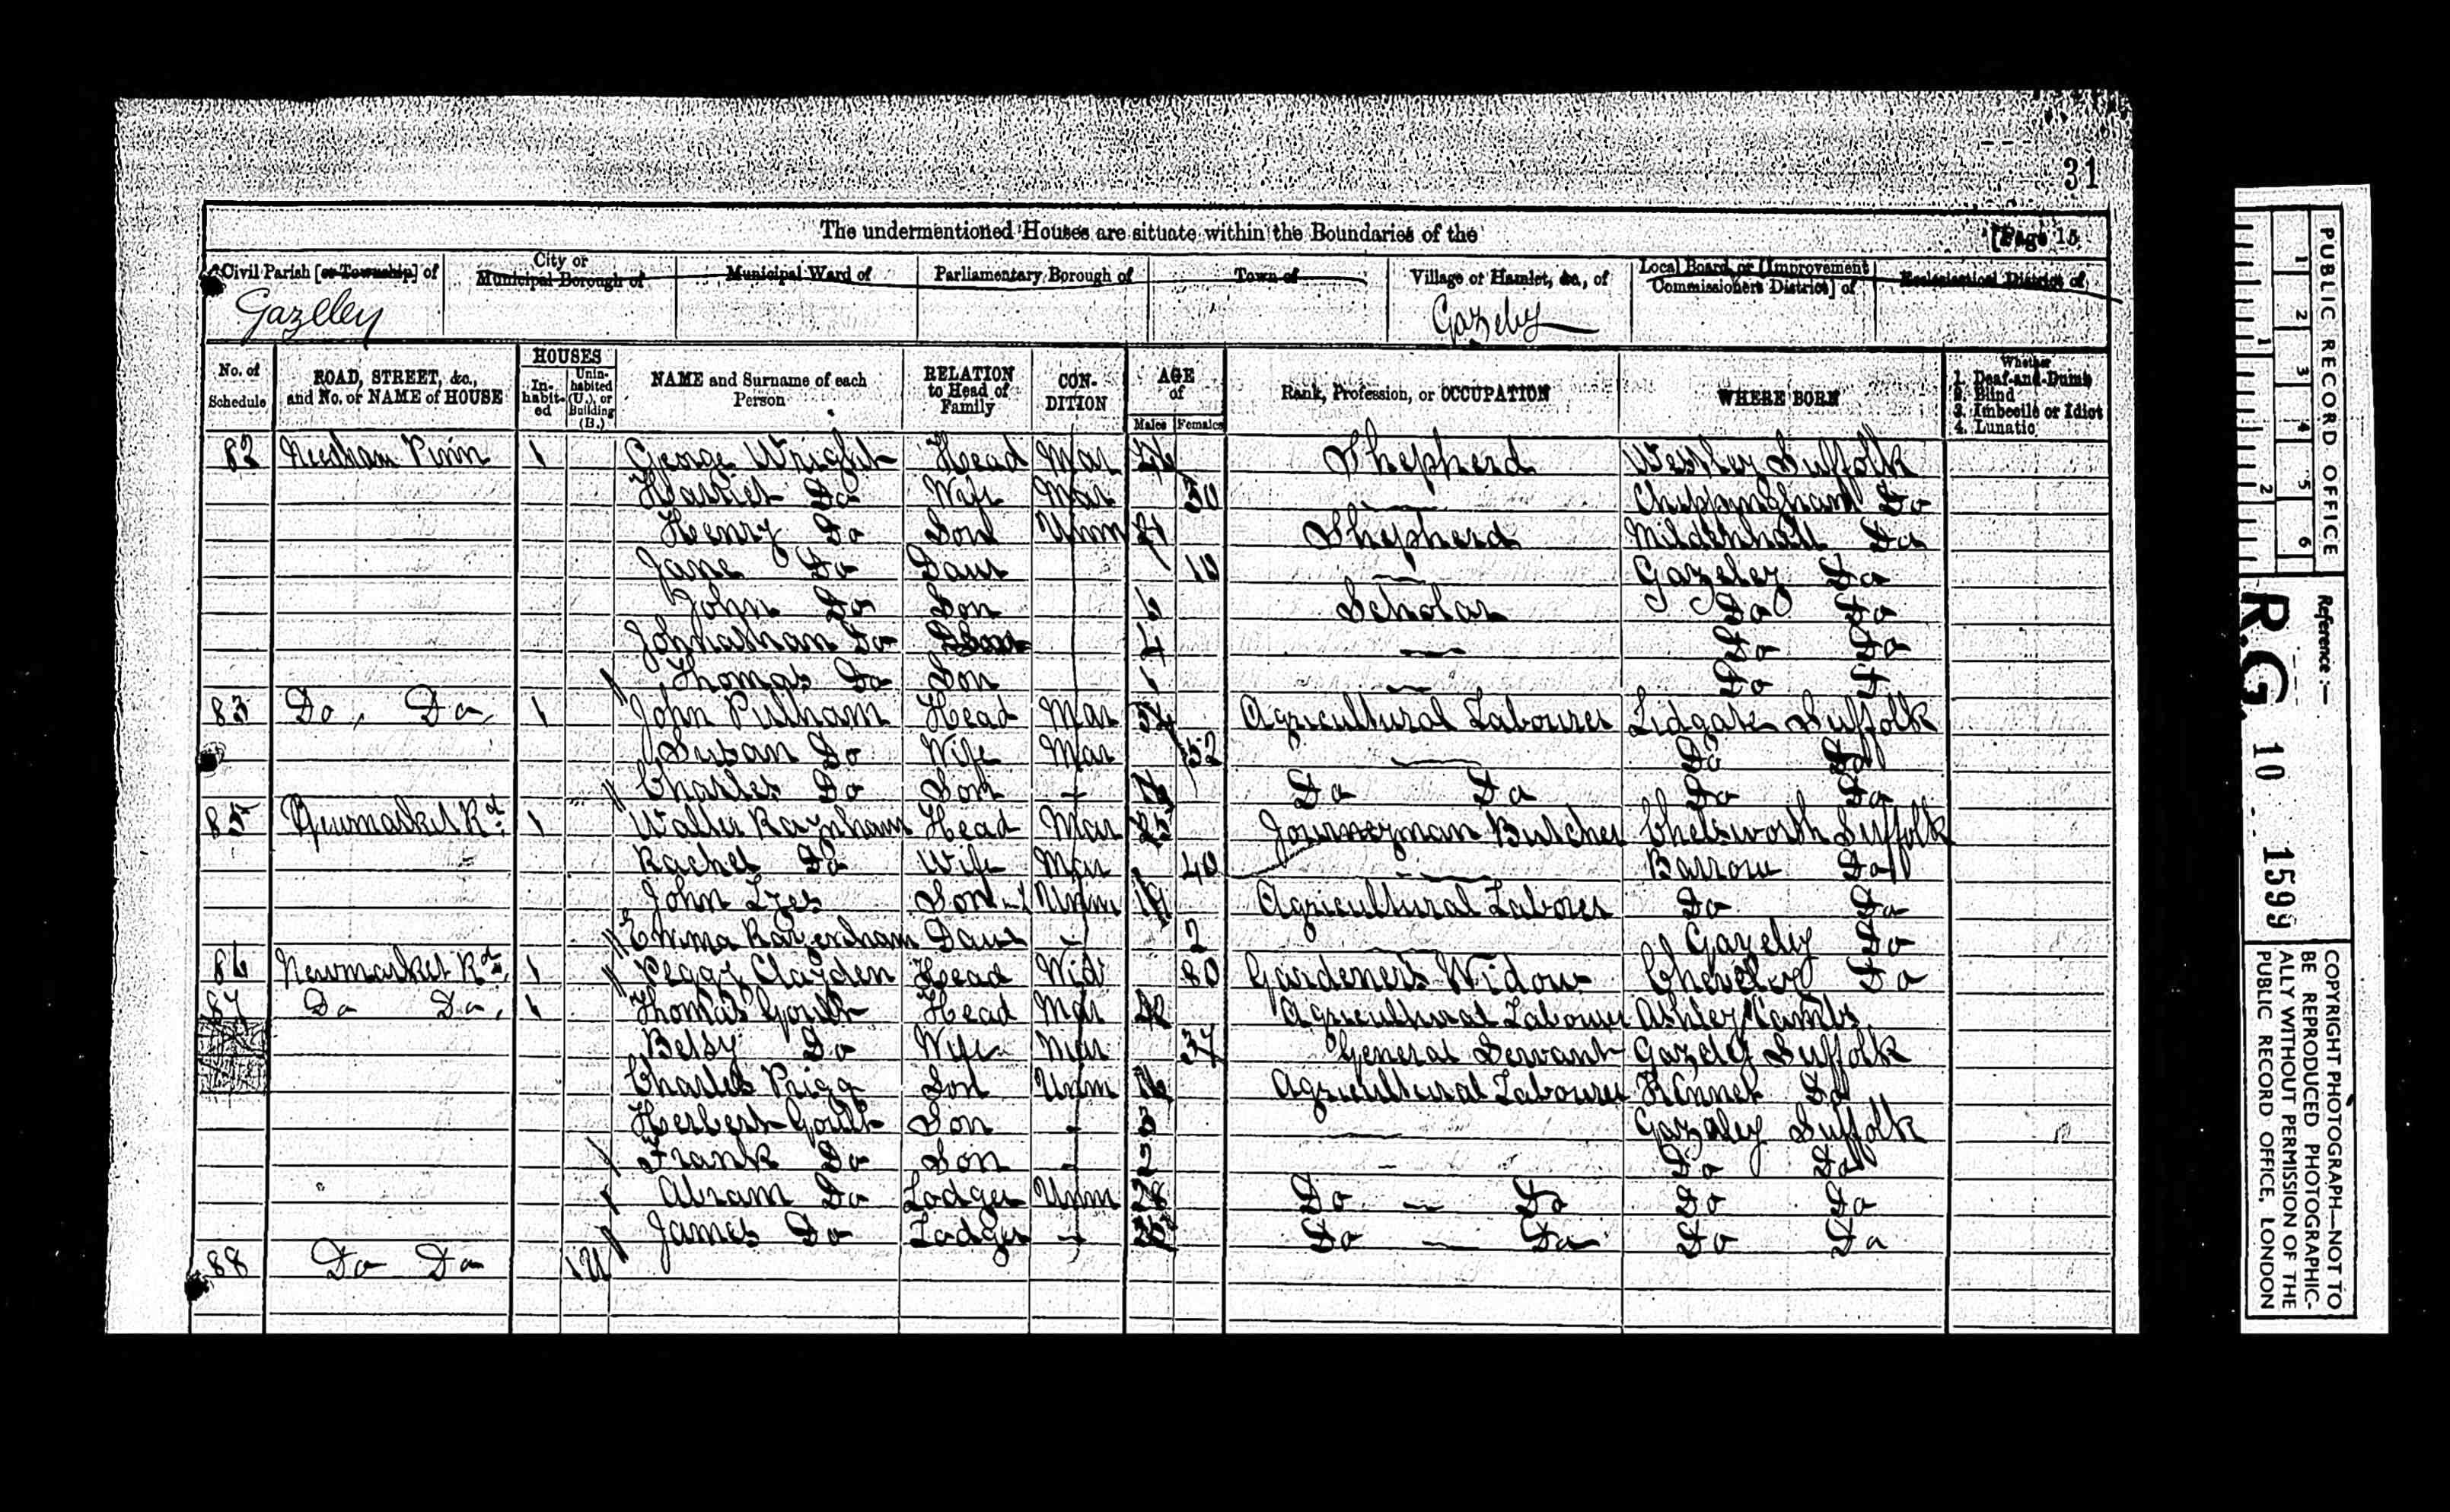 31
The undermentioned Houses are situate within the Boundaries of the [Page 15
Civil Parish [or Township] of City or Municipal Borough of Municipal Ward of Parliamentary Borough of Town of Village or Hamlet, &c., of Local Board, or [Improvement Commissioners District] of Ecclesiastical District of
Gazeley Gazeley
No. of Schedule ROAD, STREET, &c., and No. or NAME of HOUSE HOUSES In-habit-ed Unin-habited (U.), or Building (B.) NAME and Surname of each Person RELATION to Head of Family CON-DITION AGE of Males Females Rank, Profession, or OCCUPATION WHERE BORN Whether 1. Deaf-and-Dumb 2. Blind 3. Imbecile or Idiot 4. Lunatic
82 Needham 1 George Wright Head Mar Shepherd Westley Suffolk
Harriet Do Wife Mar 50 Chippingham Do
Henry Do Son Unm 21 Shepherd Mildenhall Do
Jane Do Daur 10 Gazeley Do
John Do Son Scholar Do Do
Johnathan Do Do Do
Thomas Do Son Do Do
83 Do, Do, 1 John Pulham Head Mar Agricultural Labourer Lidgate Suffolk
Susan Do Wife Mar 52 Do Do
Charles Do Son Do Do Do Do
85 Newmarket Rd 1 Walter Head Mar Journeyman Butcher Chelsworth Suffolk
Rachel Do Wife Mar 40 Barrow Do
John Unm Agricultural Labourer Do Do
Emma Daur 2 Gazeley Do
86 Newmarket Rd, 1 Peggy Clayden Head Wid 80 Gardeners Widow Cheveley Do
87 Do Do, 1 Thomas Head Mar Agricultural Labourer Ashley Cambs
Betsy Do Wife Mar 37 General Servant Gazeley Suffolk
Charles Prigg Son Unm 16 Agricultural Labourer Kennet Do
Herbert Son Gazeley Suffolk
Frank Do Son Do Do
Abram Do Lodger Unm Do Do Do Do
James Do Lodger Do Do Do Do
88 Do Do 1U
PUBLIC RECORD OFFICE
1 2 3 4 5 6
1 2
Reference :-
R.G. 10 1599
COPYRIGHT PHOTOGRAPH—NOT TO
BE REPRODUCED PHOTOGRAPHIC-
ALLY WITHOUT PERMISSION OF THE
PUBLIC RECORD OFFICE, LONDON